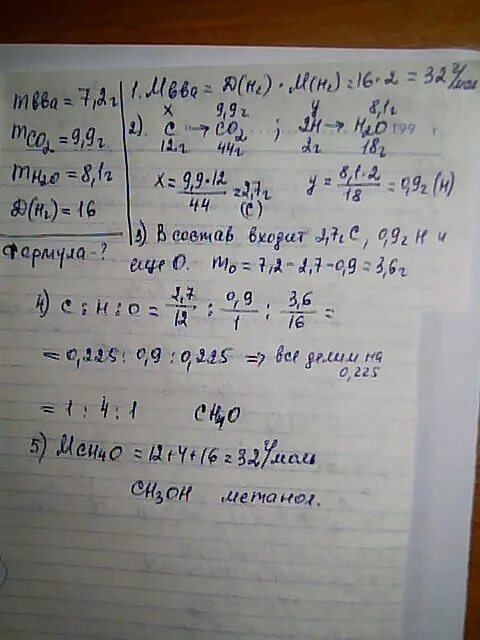 mвва = 7,2г
mCO2 = 9,9г
mH2O = 8,1г
Д(H2) = 16
Формула - ?
1. Мвва = Д(H2) · М(H2) = 16 · 2 = 32 г/моль
x 9,9г y 8,1г
2) C → CO2 ; 2H → H2O
12г 44г 2г 18г
x = 9,9 · 12 / 44 = 2,7г (C) y = 8,1 · 2 / 18 = 0,9г (H)
3) В состав входит 2,7г C, 0,9г H и
еще O. mo = 7,2 - 2,7 - 0,9 = 3,6г
4) C : H : O = 2,7/12 : 0,9/1 : 3,6/16 =
= 0,225 : 0,9 : 0,225 => все делим на 0,225
= 1 : 4 : 1 CH4O
5) МCH4O = 12 + 4 + 16 = 32 г/моль
CH3OH метанол.